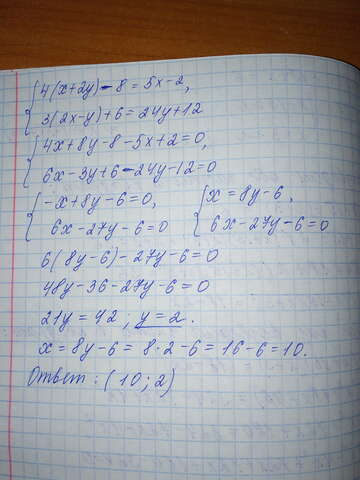 4(x+2y)-8=5x-2,
3(2x-y)+6=24y+12
4x+8y-8-5x+2=0,
6x-3y+6-24y-12=0
-x+8y-6=0, x=8y-6,
6x-27y-6=0 6x-27y-6=0
6(8y-6)-27y-6=0
48y-36-27y-6=0
21y=42; y=2.
x=8y-6=8·2-6=16-6=10.
Ответ: (10;2)